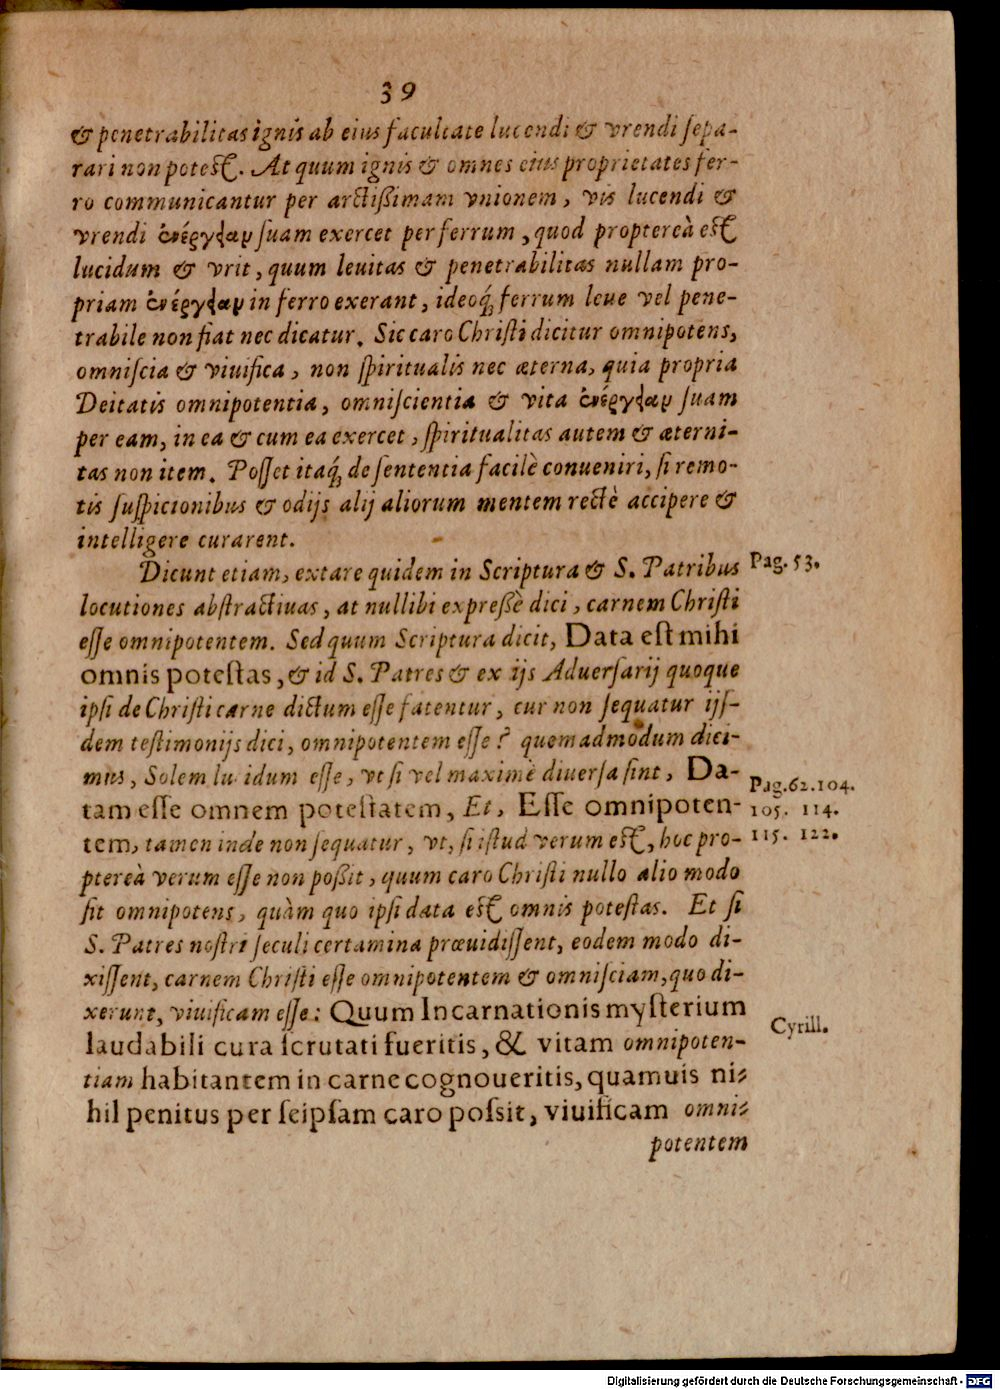 39
& penetrabilitas ignis ab eius facultate lucendi & vrendi ſepa-
rari non poteſt. At quum ignis & omnes eius proprietates fer-
ro communicantur per arctißimam vnionem, vis lucendi &
vrendi ἐνέργειαν ſuam exercet per ferrum, quod proptereà eſt
lucidum & vrit, quum leuitas & penetrabilitas nullam pro-
priam ἐνέργειαν in ferro exerant, ideoq́; ferrum leue vel pene-
trabile non fiat nec dicatur. Sic caro Chriſti dicitur omnipotens,
omniſcia & viuifica, non ſpiritualis nec æterna, quia propria
Deitatis omnipotentia, omniſcientia & vita ἐνέργειαν ſuam
per eam, in ea & cum ea exercet, ſpiritualitas autem & æterni-
tas non item. Poſſet itaq́; de ſententia facilè conueniri, ſi remo-
tis ſuſpicionibus & odijs alij aliorum mentem rectè accipere &
intelligere curarent.
Dicunt etiam, extare quidem in Scriptura & S. Patribus
Pag. 53.
locutiones abſtractiuas, at nullibi expreßè dici, carnem Chriſti
eſſe omnipotentem. Sed quum Scriptura dicit, Data eſt mihi
omnis poteſtas, & id S. Patres & ex ijs Aduerſarij quoque
ipſi de Chriſti carne dictum eſſe fatentur, cur non ſequatur ijſ-
dem teſtimonijs dici, omnipotentem eſſe? quemadmodum dici-
mus, Solem lu idum eſſe, vt ſi vel maximè diuerſa ſint, Da-
Pag. 62. 104.
tam eſſe omnem poteſtatem, Et, Eſſe omnipoten-
105. 114.
tem, tamen inde non ſequatur, vt, ſi iſtud verum eſt, hoc pro-
115. 122.
ptereà verum eſſe non poßit, quum caro Chriſti nullo alio modo
ſit omnipotens, quàm quo ipſi data eſt omnis poteſtas. Et ſi
S. Patres noſtri ſeculi certamina præuidiſſent, eodem modo di-
xiſſent, carnem Chriſti eſſe omnipotentem & omniſciam, quo di-
xerunt, viuificam eſſe: Quum Incarnationis myſterium
Cyrill.
laudabili cura ſcrutati fueritis, & vitam omnipoten-
tiam habitantem in carne cognoueritis, quamuis ni-
hil penitus per ſeipſam caro poſsit, viuificam omni-
potentem
Digitalisierung gefördert durch die Deutsche Forschungsgemeinschaft - DFG